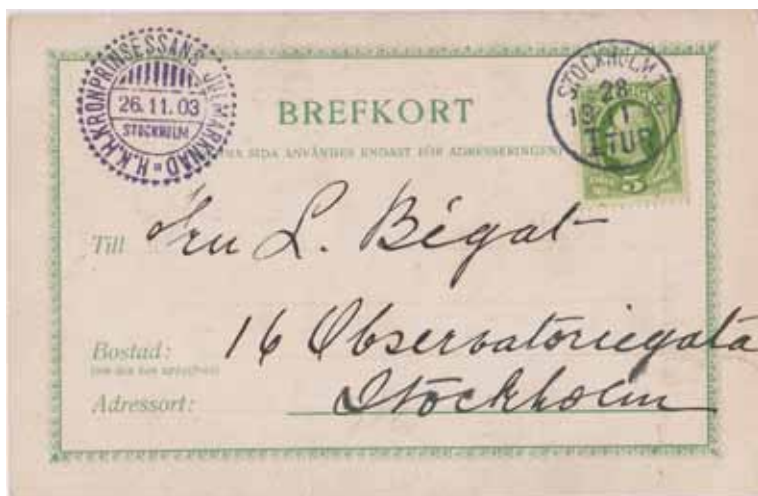 H.K.H. KRONPRINSESSANS JULMARKNAD
26.11.03
STOCKHOLM
BREFKORT
SIDA ANVÄNDES ENDAST FÖR ADRESSERINGEN
STOCKHOLM
28
I TUR
5
Till Fru L. Bégat
Bostad: 16 Observatoriegata
Adressort: Stockholm